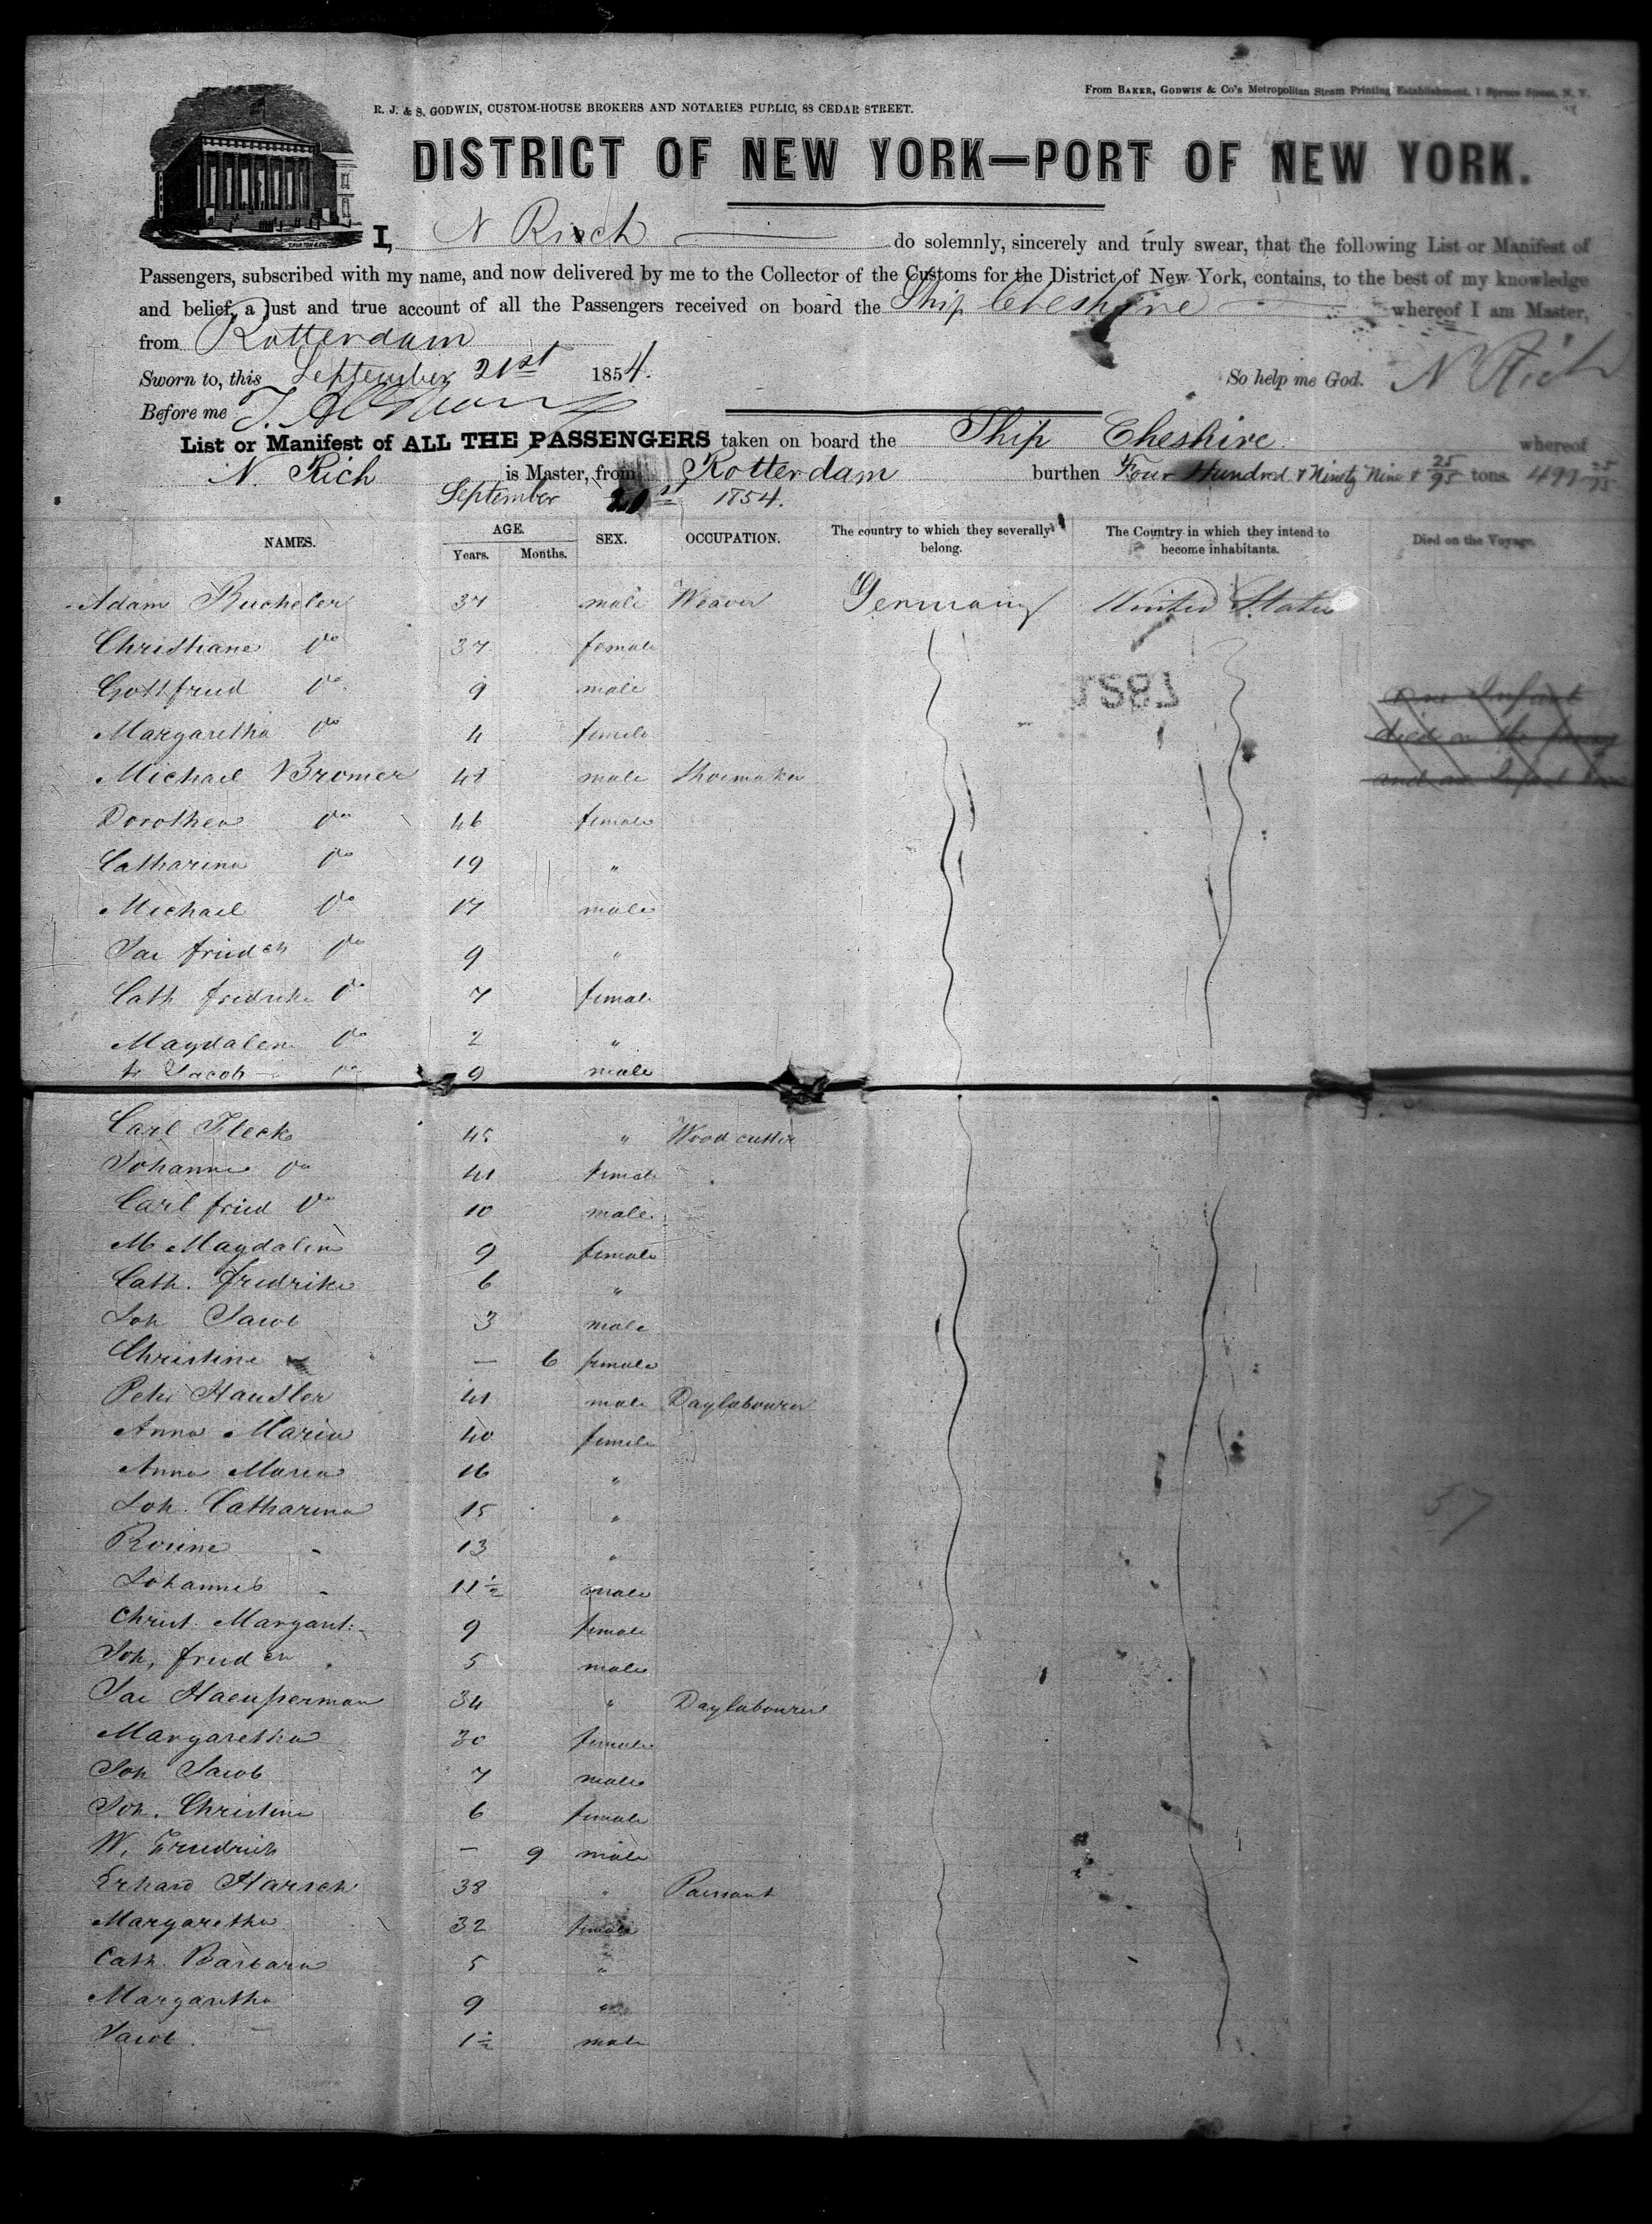 From BAKER, GODWIN & Co's Metropolitan Steam Printing Establishment, 1 Spruce Street, N. Y.
R. J. & S. GODWIN, CUSTOM-HOUSE BROKERS AND NOTARIES PUBLIC, 88 CEDAR STREET.
DISTRICT OF NEW YORK—PORT OF NEW YORK.
I, N Rich do solemnly, sincerely and truly swear, that the following List or Manifest of
Passengers, subscribed with my name, and now delivered by me to the Collector of the Customs for the District of New York, contains, to the best of my knowledge
and belief, a just and true account of all the Passengers received on board the Ship Cheshire whereof I am Master,
from Rotterdam
Sworn to, this September 21st 1854. So help me God. N Rich
Before me
List or Manifest of ALL THE PASSENGERS taken on board the Ship Cheshire whereof
N. Rich is Master, from Rotterdam burthen Four Hundred & Ninety Nine & 25/95 tons. 499 25/95
September 21st 1854.
NAMES. AGE. Years. Months. SEX. OCCUPATION. The country to which they severally belong. The Country in which they intend to become inhabitants. Died on the Voyage.
Adam Bucheler 37 male Weaver Germany United States
Christiane Do 37 female
Gottfried Do 9 male One Infant
Margaretha Do 4 female died on the
Michael Bromer 48 male Shoemaker and an Infant
Dorothea Do 46 female
Catharina Do 19 "
Michael Do 17 male
Jac friedch Do 9 "
Cath fredrike Do 7 female
Magdalena Do 2 "
Jacob Do 9 male
Carl Fleck 45 " Wood cutter
Johanne Do 41 female
Carl fried Do 10 male
M Magdalena 9 female
Cath. fredrike 6 "
Joh Jacob 3 male
Christine — 6 female
Peter Hausler 41 male Daylabourer
Anna Maria 40 female
Anna Maria 16 "
Joh. Catharina 15 "
Rosine 13 "
Johannes 11½ male
Christ. Margaret: 9 female
Joh, friedch 5 male
Jac Haeusserman 34 " Daylabourer
Margaretha 30 female
Joh Jacob 7 male
Joh. Christine 6 female
W. Friedrich — 9 male
Erhard Harsch 38 " Paisant
Margaretha 32 female
Cath. Barbara 5 "
Margaretha 9 "
Jacob 1½ male
57